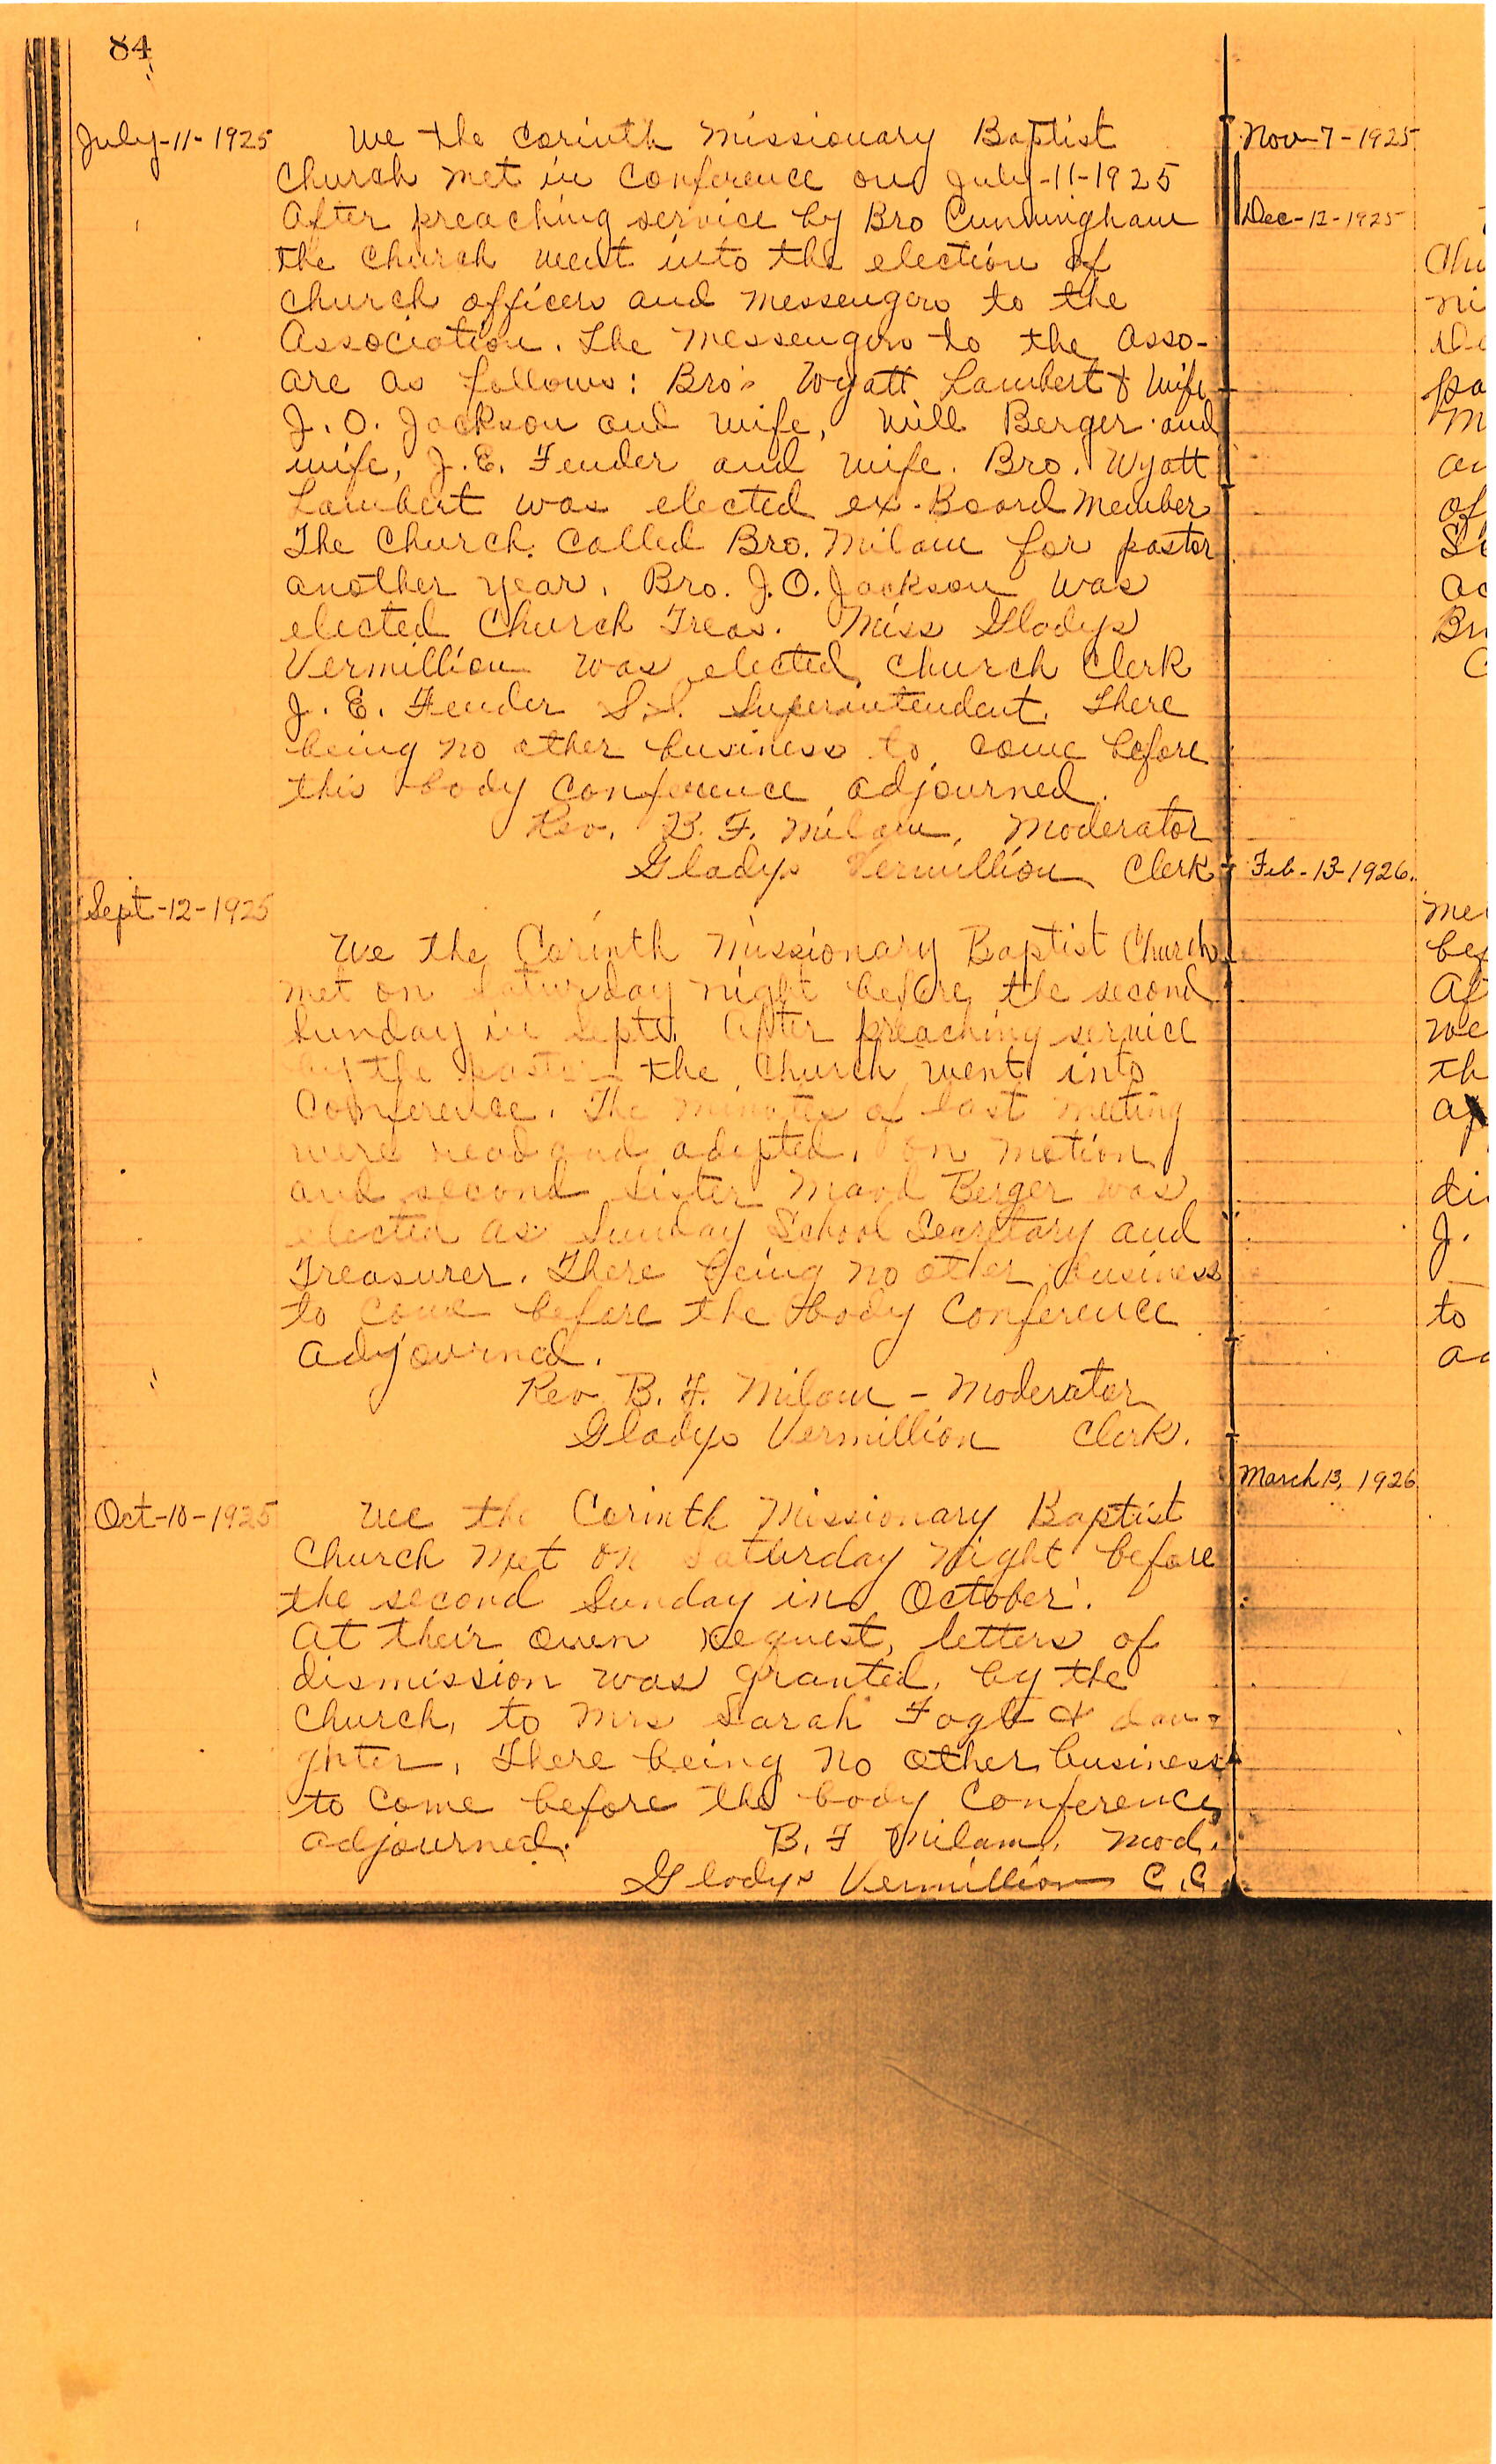 84
July-11-1925
We the Corinth Missionary Baptist
Church met in Conference on July-11-1925
After preaching service by Bro Cunningham
the Church went into the election of
Church officers and messengers to the
Association. The messengers to the asso-
are as follows: Bro's Wyatt Lambert & wife
J. O. Jackson and wife, Will Berger and
wife, J. E. Fender and wife. Bro. Wyatt
Lambert was elected ex-Board Member
The Church Called Bro. Milam for pastor
another year. Bro. J. O. Jackson was
elected Church Treas. Miss Gladys
Vermillion was elected Church Clerk
J. E. Fender S.S. Superintendent. There
being no other business to come before
this body Conference adjourned.
Rev. B. F. Milam, Moderator
Gladys Vermillion Clerk
Sept-12-1925
We the Corinth Missionary Baptist Church
met on Saturday night before the second
Sunday in Sept. After preaching service
by the pastor the Church went into
Conference. The minutes of last meeting
were read and adopted. On motion
and second Sister Maud Berger was
elected as Sunday School Secretary and
Treasurer. There being no other business
to come before the body Conference
adjourned.
Rev B. F. Milam - Moderator
Gladys Vermillion Clerk.
Oct-10-1925
We the Corinth Missionary Baptist
Church met on Saturday Night before
the second Sunday in October.
At their own request, letters of
dismission was granted, by the
Church, to Mrs Sarah & dau-
ghter. There being no other business
to come before the body Conference
adjourned. B. F Milam, Mod.
Gladys Vermillion C.C.
Nov-7-1925
Dec-12-1925
Chu
ni
pa
M
an
of
ac
Br
Feb-13-1926.
me
bef
Af
we
th
ap
di
J.
to
ad
March 13, 1926